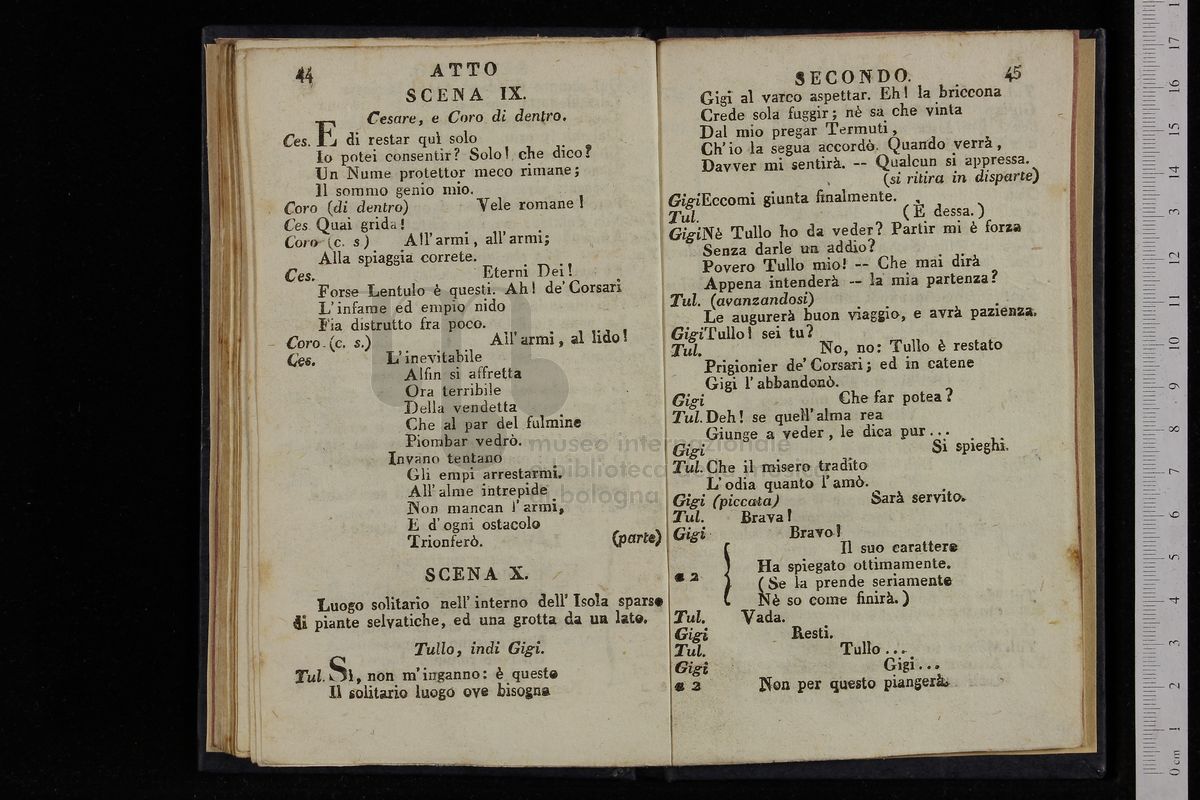 44
ATTO
SCENA IX.
Cesare, e Coro di dentro.
Ces. E di restar quì solo
Io potei consentir? Solo! che dico?
Un Nume protettor meco rimane;
Il sommo genio mio.
Coro (di dentro) Vele romane!
Ces Quai grida!
Coro (c. s) All' armi, all' armi;
Alla spiaggia correte.
Ces. Eterni Dei!
Forse Lentulo è questi. Ah! de' Corsari
L' infame ed empio nido
Fia distrutto fra poco.
Coro (c. s.) All' armi, al lido!
Ces. L' inevitabile
Alfin si affretta
Ora terribile
Della vendetta
Che al par del fulmine
Piombar vedrò.
Invano tentano
Gli empi arrestarmi.
All' alme intrepide
Non mancan l' armi,
E d' ogni ostacolo
Trionferò. (parte)
SCENA X.
Luogo solitario nell' interno dell' Isola sparso
di piante selvatiche, ed una grotta da un lato.
Tullo, indi Gigi.
Tul. Sì, non m' inganno: è questo
Il solitario luogo ove bisogna
SECONDO. 45
Gigi al varco aspettar. Eh! la briccona
Crede sola fuggir; nè sa che vinta
Dal mio pregar Termuti,
Ch' io la segua accordò. Quando verrà,
Davver mi sentirà. -- Qualcun si appressa.
(si ritira in disparte)
Gigi Eccomi giunta finalmente.
Tul. (È dessa.)
Gigi Nè Tullo ho da veder? Partir mi è forza
Senza darle un addio?
Povero Tullo mio! -- Che mai dirà
Appena intenderà -- la mia partenza?
Tul. (avanzandosi)
Le augurerà buon viaggio, e avrà pazienza.
Gigi Tullo! sei tu?
Tul. No, no: Tullo è restato
Prigionier de' Corsari; ed in catene
Gigi l' abbandonò.
Gigi Che far potea?
Tul. Deh! se quell' alma rea
Giunge a veder, le dica pur...
Gigi Si spieghi.
Tul. Che il misero tradito
L' odia quanto l' amò.
Gigi (piccata) Sarà servito.
Tul. Brava!
Gigi Bravo!
Il suo carattere
Ha spiegato ottimamente.
a 2 (Se la prende seriamente
Nè so come finirà.)
Tul. Vada.
Gigi Resti.
Tul. Tullo...
Gigi Gigi...
a 2 Non per questo piangerà.
museo internazionale
e biblioteca della musica
di bologna
0 cm 1 2 3 4 5 6 7 8 9 10 11 12 13 14 15 16 17